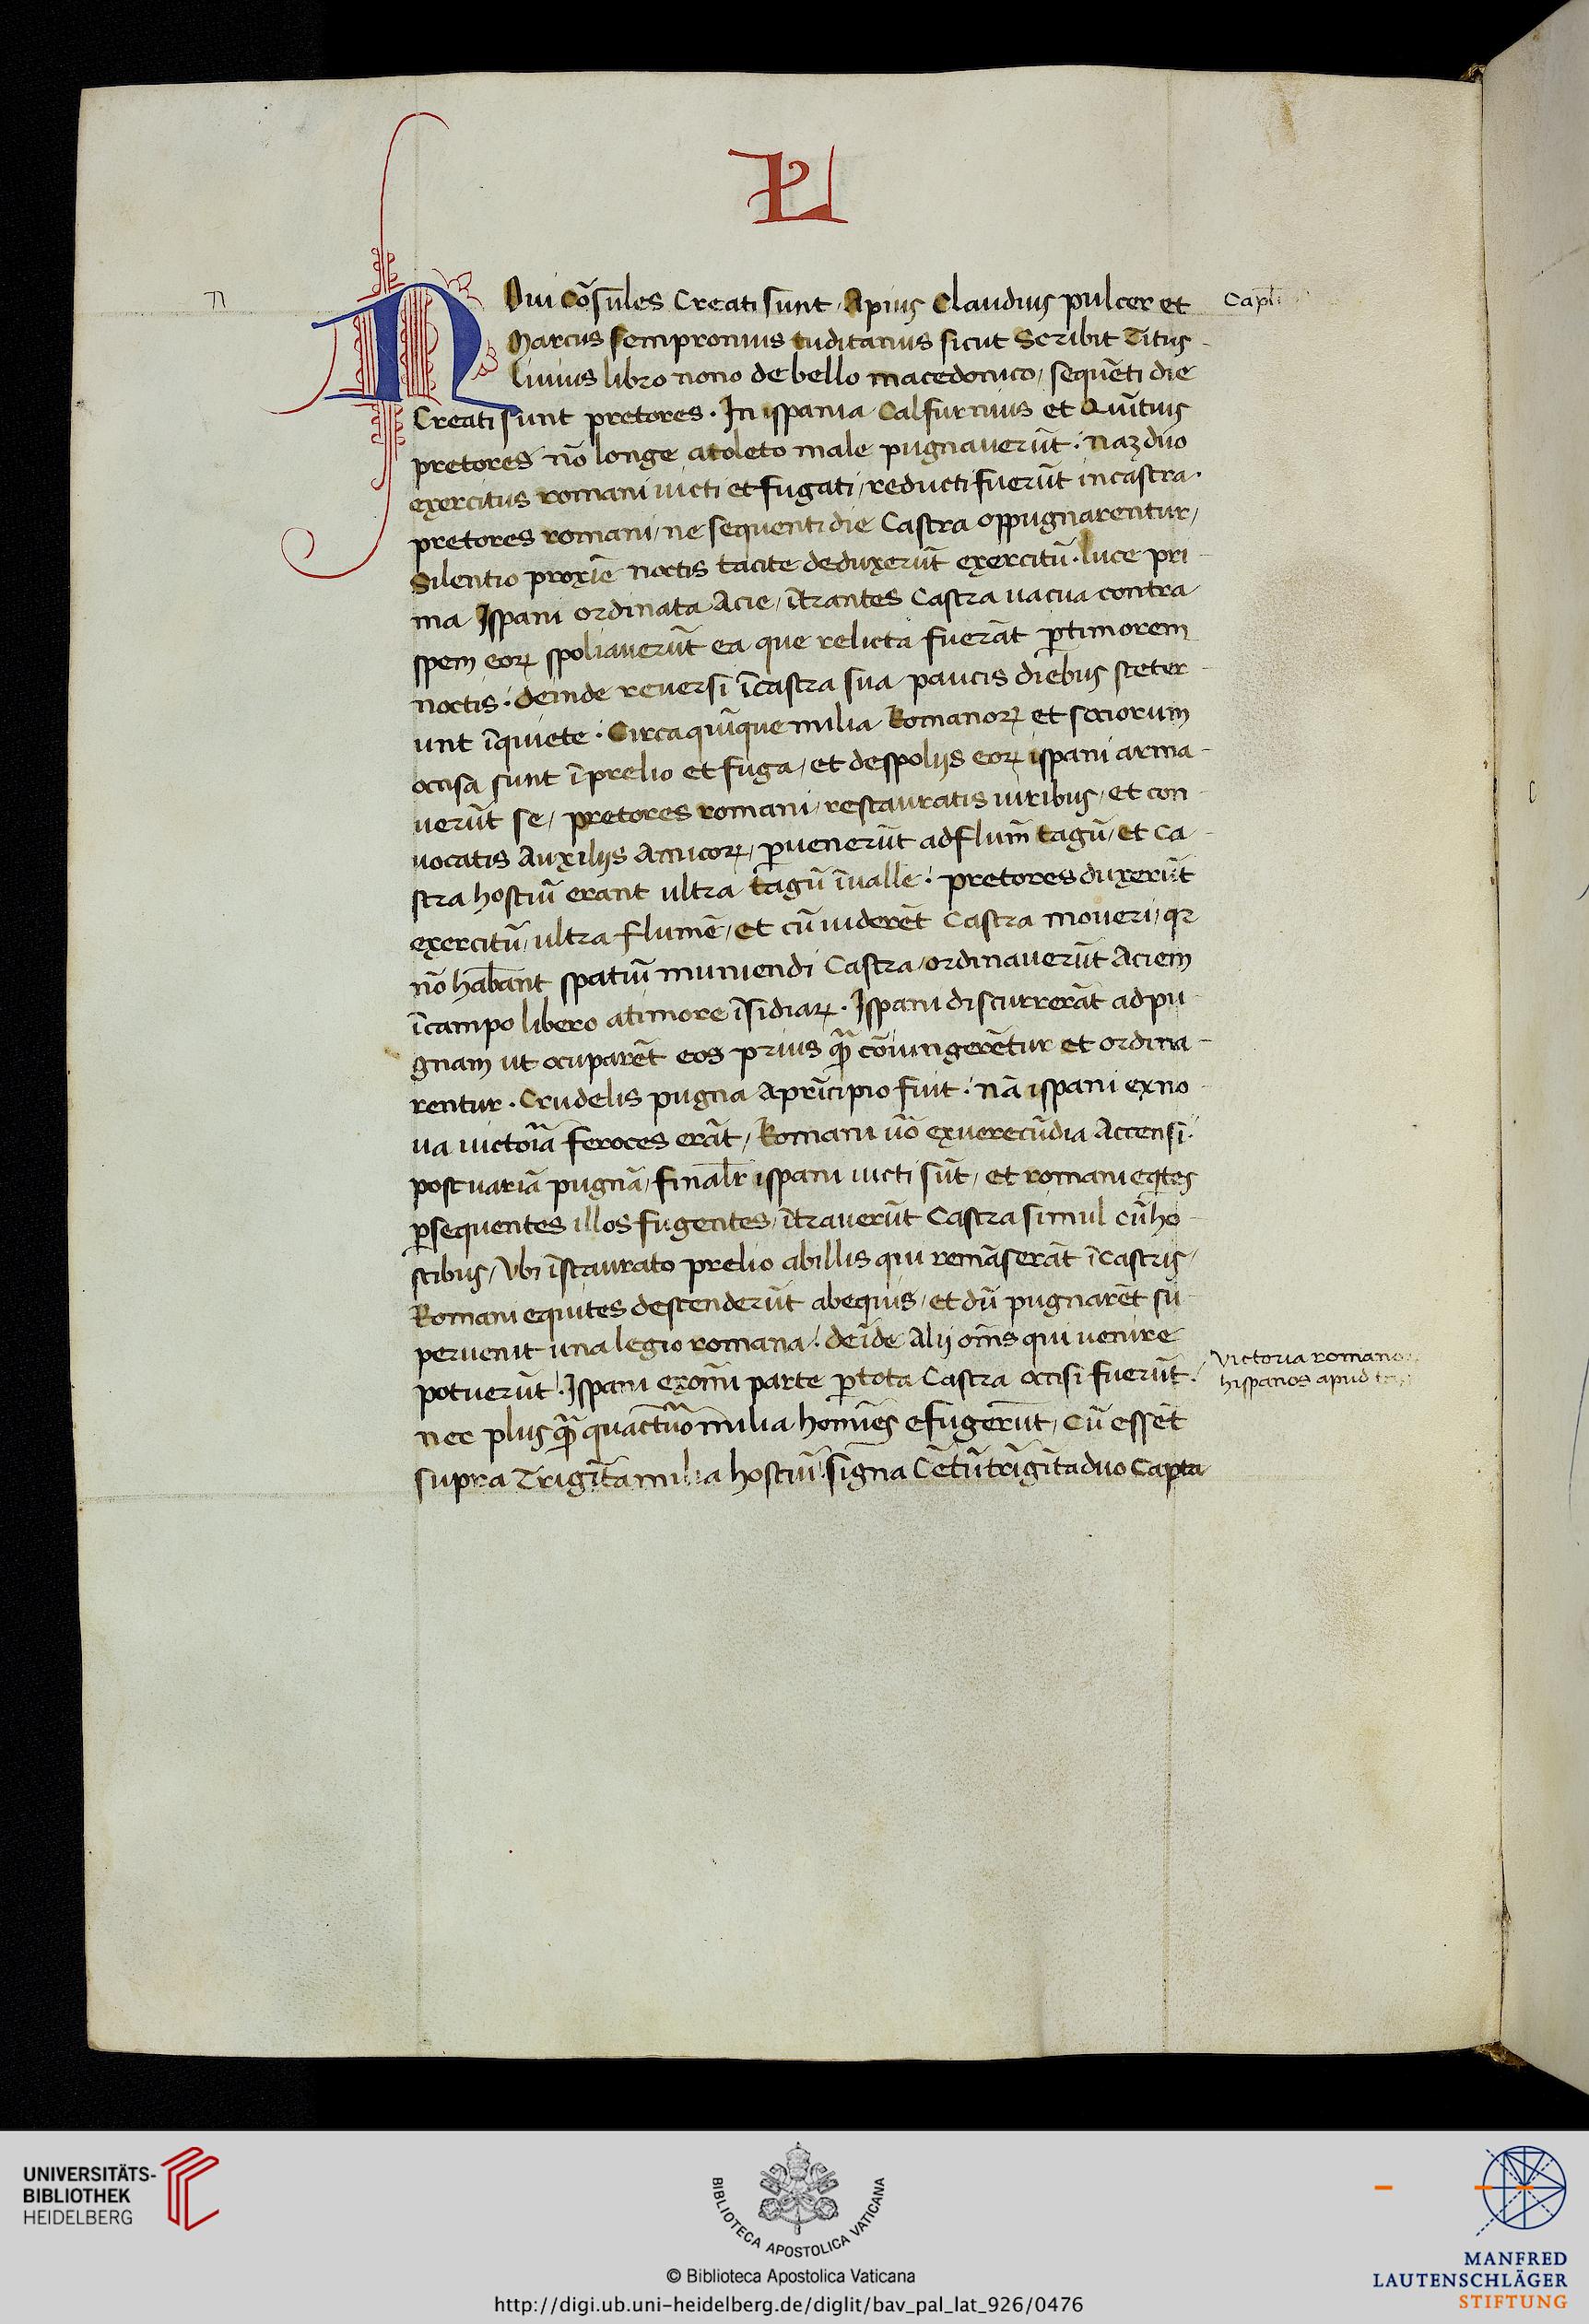 L
n
NOui cōsules Creati sunt, Apius Claudius pulcer et
Capl̄i
Marcus sempronius tuditanus sicut Scribit Titus
Liuius libro nono de bello macedonico, sequēti die
Creati sunt pretores. In ispania Calfurnius et Quītius
pretores nō longe atoleto male pugnauerūt. naʒ duo
exercitus romani uicti et fugati, reducti fuerūt incastra.
pretores romani, ne sequenti die Castra oppugnarentur,
Silentio proxīe noctis tacite deduxerūt exercitū. luce pri
ma Ispani ordinata Acie, ītrantes Castra uacua contra
spem eoꝝ spoliauerūt ea que relicta fuerāt ꝑtimorem
noctis. deinde reuersi īcastra sua paucis diebus steter
unt īquiete. Circa quīque milia Romanoꝝ et sociorum
occisa sunt īprelio et fuga, et despoliis eoꝝ ispani arma
uerūt se, pretores romani, restauratis uiribus, et con
uocatis Auxiliis Amicoꝝ, ꝑuenerūt adflum̄ tagū, et Ca
stra hostiū erant ultra tagū īualle. pretores duxerūt
exercitū, ultra flumē, et cū uiderēt Castra moueri, qꝛ
nō hab̄ant spatiū muniendi Castra, ordinauerūt Aciem
īcampo libero atimore īsidiaꝝ. Ispani discurrerāt adpu
gnam ut ocuparēt eos prius qꝫ̄ cōiungerētur et ordina
rentur. Crudelis pugna Aprīcipio fuit. nā ispani exno
ua uictoīa feroces erāt, Romani ūo exuerecūdia Accensi.
post uariā pugnā, finalr̄ ispani uicti sūt, et romani eq̄tes
ꝑsequentes illos fugentes, ītrauerūt Castra simul cūho
stibus, Vbi īstaurato prelio abillis qui remāserāt īcastris,
Romani equites descenderūt abequis, et dū pugnarēt su
peruenit una legio romana. deīde Alii om̄s qui uenire
potuerūt. Ispani exom̄i parte ꝑtota Castra occisi fuerūt.
Victoria romano
hispanos apud
nec plus qꝫ̄ quactūo milia homīes efugerunt, Cū essēt
supra Trigīta milia hostiū. signa Cētū trīgīta duo Capta
UNIVERSITÄTS-
BIBLIOTHEK
HEIDELBERG
BIBLIOTECA APOSTOLICA VATICANA
© Biblioteca Apostolica Vaticana
http://digi.ub.uni-heidelberg.de/diglit/bav_pal_lat_926/0476
MANFRED
LAUTENSCHLÄGER
STIFTUNG